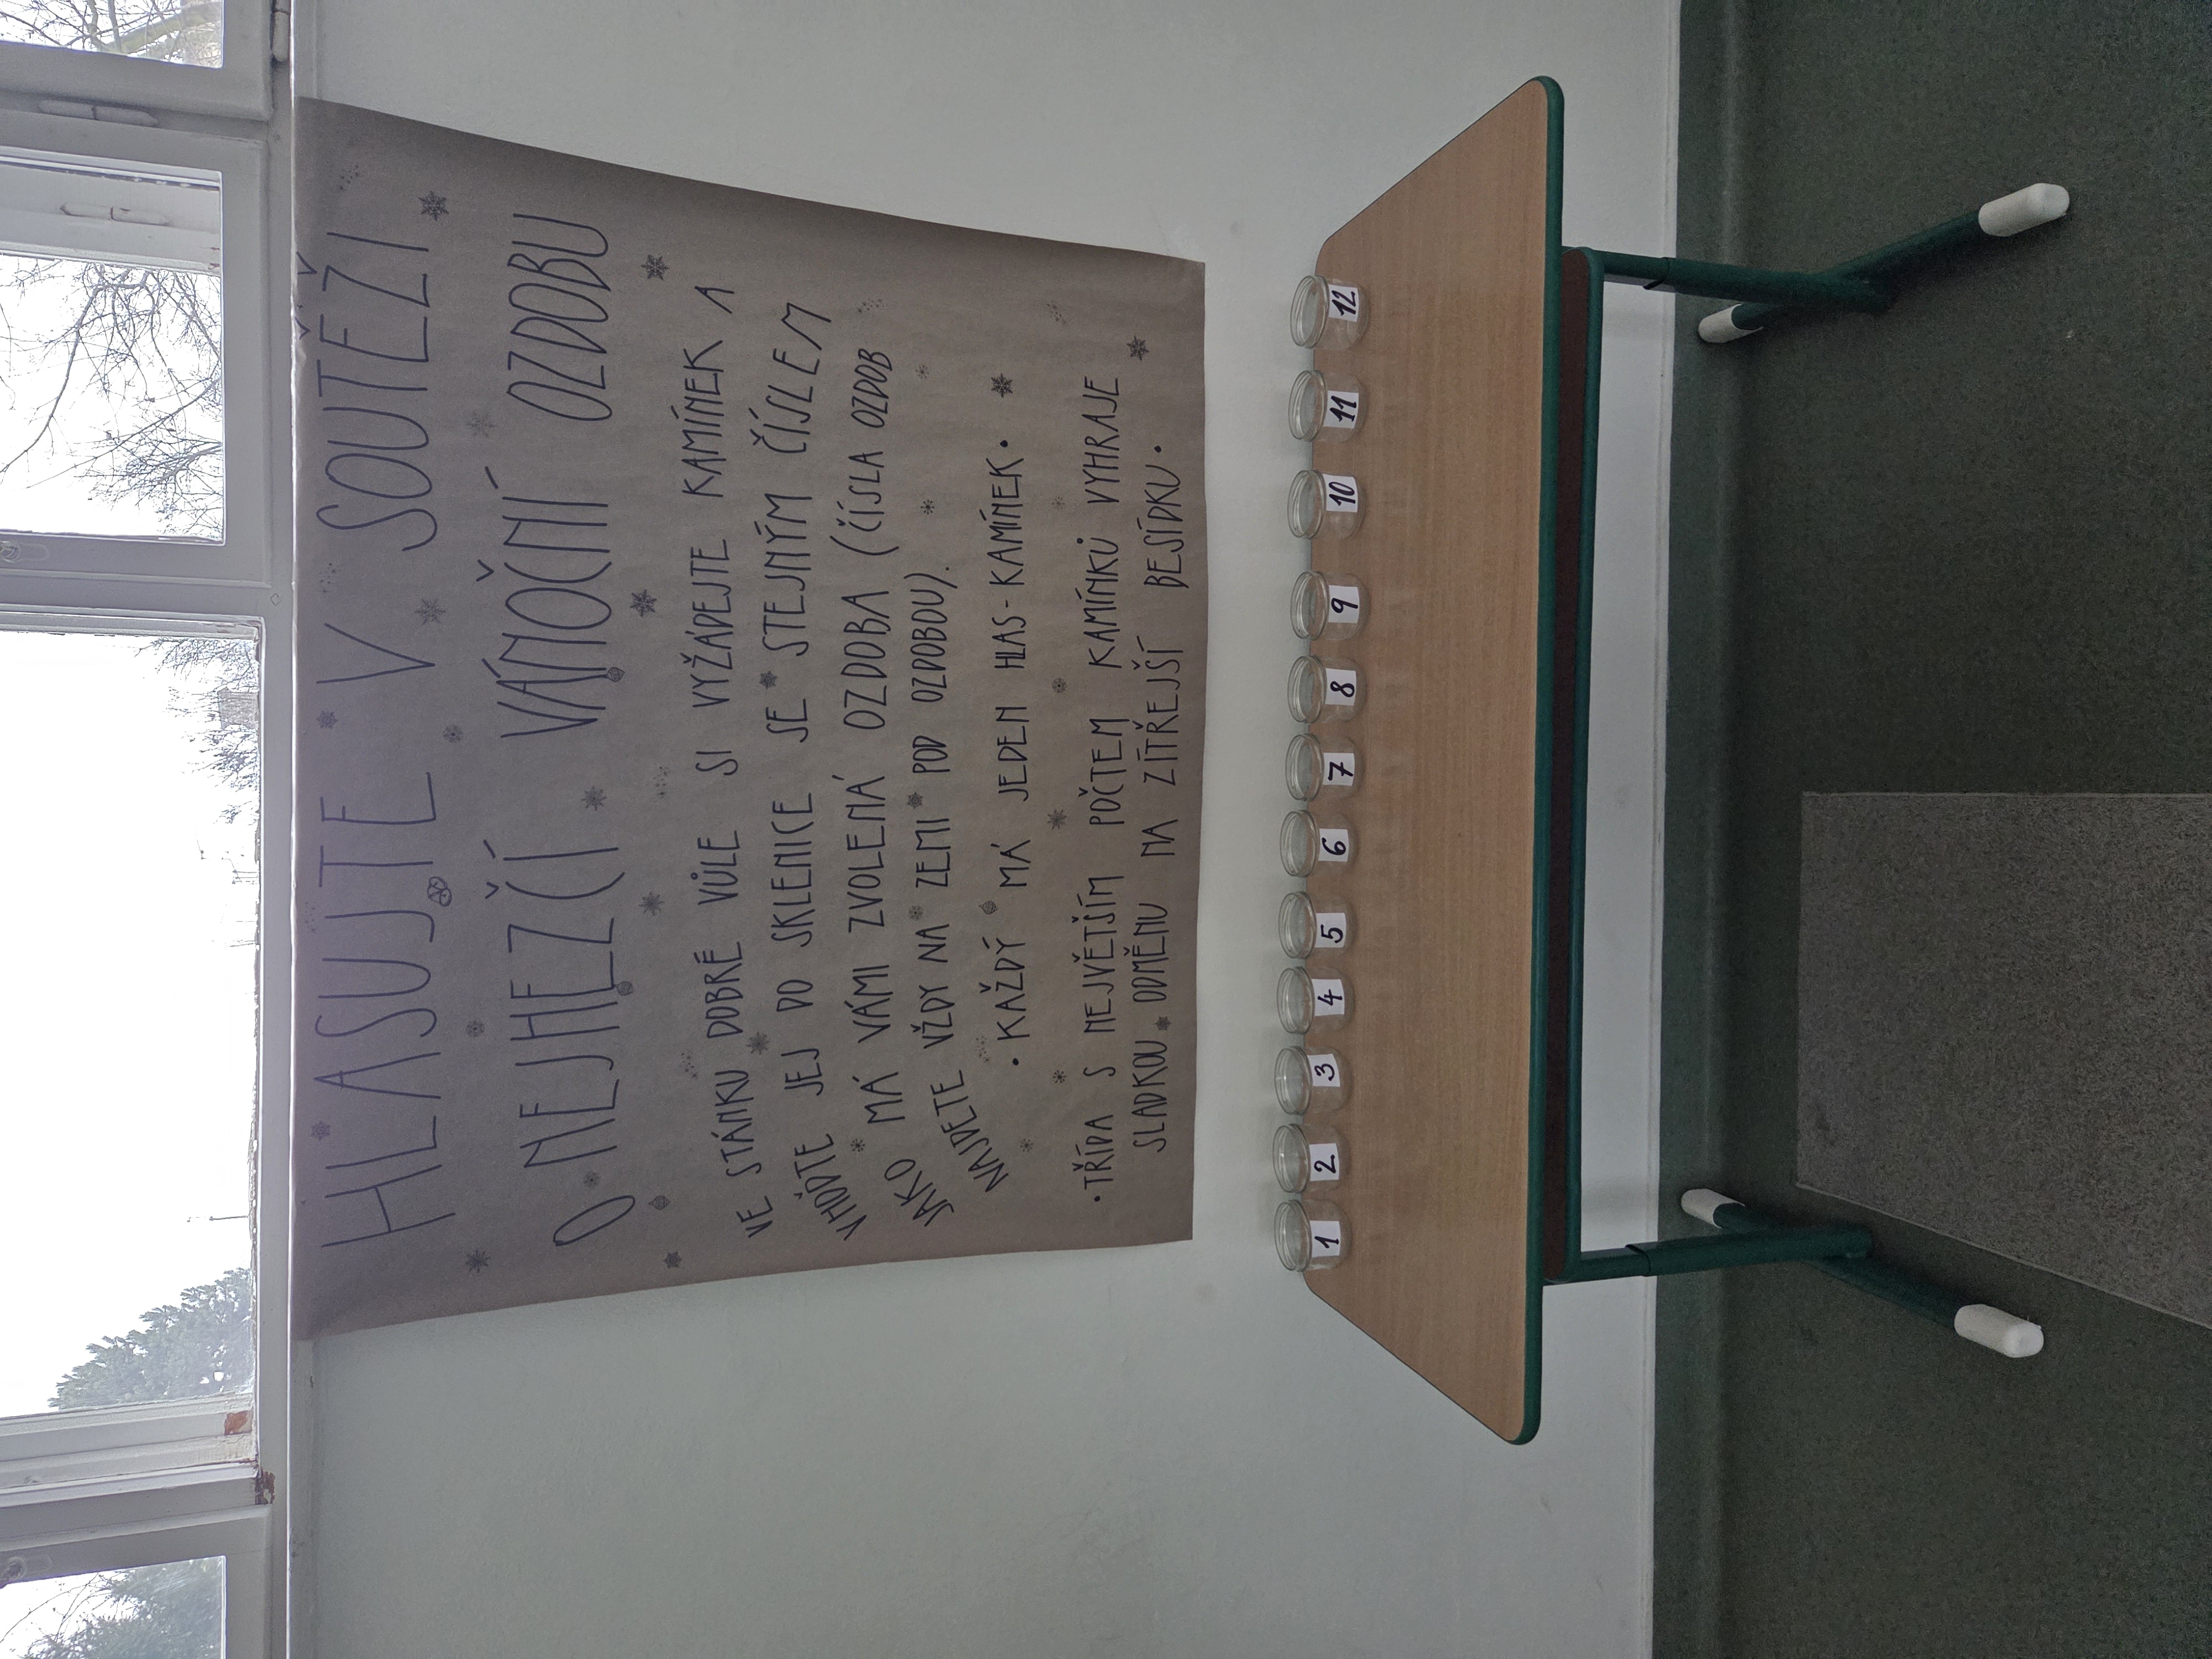 HLASUJTE V SOUTĚŽI
O NEJHEZČÍ VÁNOČNÍ OZDOBU
VE STÁNKU DOBRÉ VŮLE SI VYŽÁDEJTE KAMÍNEK A
VHOĎTE JEJ DO SKLENICE SE STEJNÝM ČÍSLEM
JAKO MÁ VÁMI ZVOLENÁ OZDOBA (ČÍSLA OZDOB
NAJDETE VŽDY NA ZEMI POD OZDOBOU).
• KAŽDÝ MÁ JEDEN HLAS - KAMÍNEK •
• TŘÍDA S NEJVĚTŠÍM POČTEM KAMÍNKŮ VYHRAJE
SLADKOU ODMĚNU NA ZÍTŘEJŠÍ BESÍDKU •
1 2 3 4 5 6 7 8 9 10 11 12